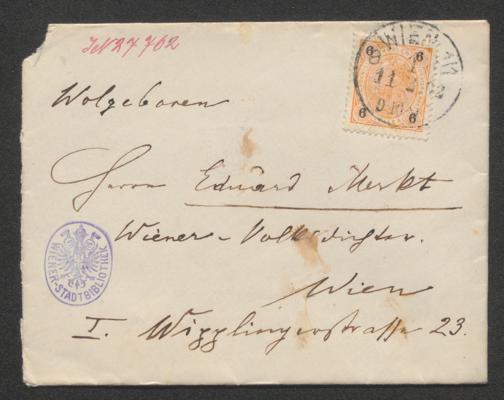 JN 27702
WIEN 1/1
6 6
8 1
11
9-10
6 6
Wolgeboren
Herrn Eduard Merkt
Wiener-Volksdichter.
Wien
I. Wipplingerstrasse 23.
WIENER-STADTBIBLIOTHEK